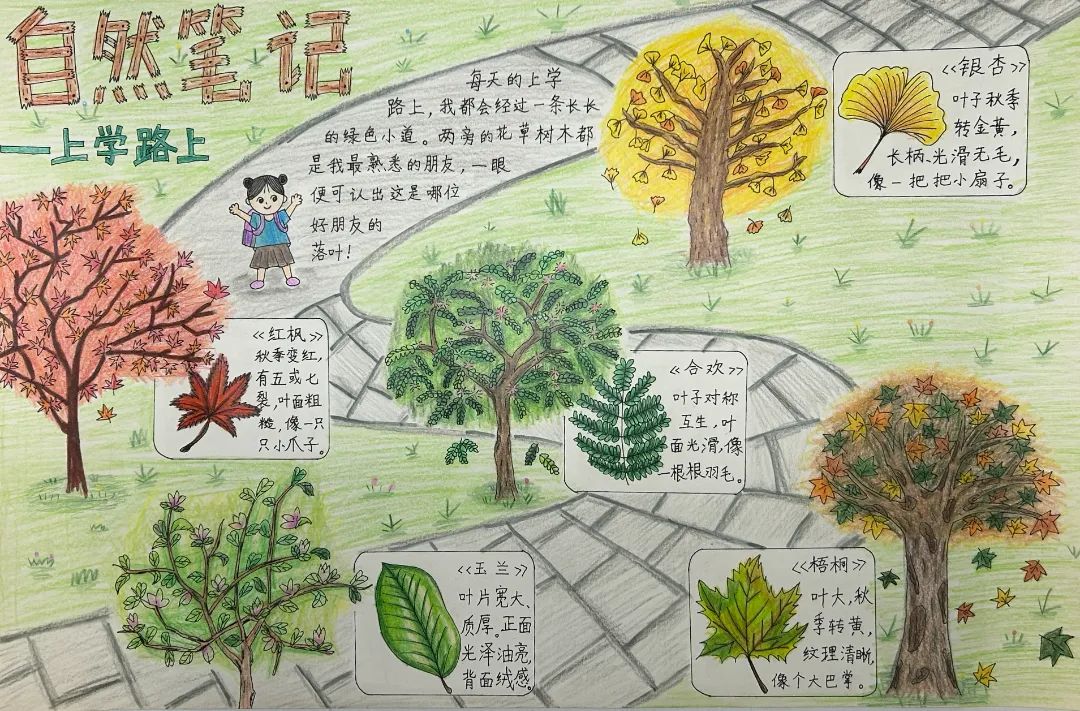 自然笔记
—上学路上
每天的上学
路上，我都会经过一条长长
的绿色小道。两旁的花草树木都
是我最熟悉的朋友，一眼
便可认出这是哪位
好朋友的
落叶！
《银杏》
叶子秋季
转金黄，
长柄、光滑无毛，
像一把把小扇子。
《红枫》
秋季变红，
有五或七
裂，叶面粗
糙，像一只
只小爪子。
《合欢》
叶子对称
互生，叶
面光滑，像
一根根羽毛。
《玉兰》
叶片宽大、
质厚。正面
光泽油亮，
背面绒感。
《梧桐》
叶大，秋
季转黄，
纹理清晰，
像个大巴掌。